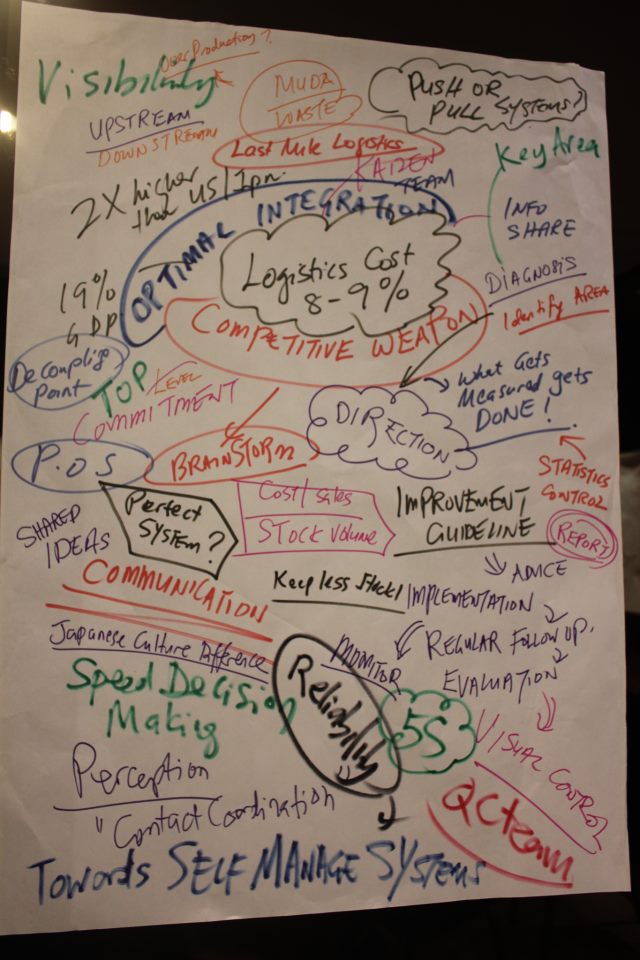 Over Production?
Visibility
MUDA
WASTE
PUSH OR
PULL SYSTEMS?
UPSTREAM
DOWNSTREAM
Last Mile Logistics
Key Area
KAIZEN
TEAM
2X higher
than US/Jpn.
OPTIMAL INTEGRATION
INFO
SHARE
Logistics Cost
8-9%
19%
GDP
DIAGNOSIS
Identify AREA
COMPETITIVE WEAPON
Decoupling
Point
TOP
LEVEL
COMMITMENT
What Gets
Measured gets
DONE!
DIRECTION
P.O.S
BRAINSTORM
STATISTICS
CONTROL
SHARED
IDEAS
Perfect
SYSTEM?
Cost/sales
STOCK VOLUME
IMPROVEMENT
GUIDELINE
REPORT
ADVICE
COMMUNICATION
Keep less Stock!
IMPLEMENTATION
Japanese Culture Difference
MONITOR
REGULAR FOLLOW UP.
EVALUATION
Speed Decision
Making
Reliability
5S
VISUAL CONTROL
Perception
" Contact Coordination
QC team
Towards SELF MANAGE SYSTEMS